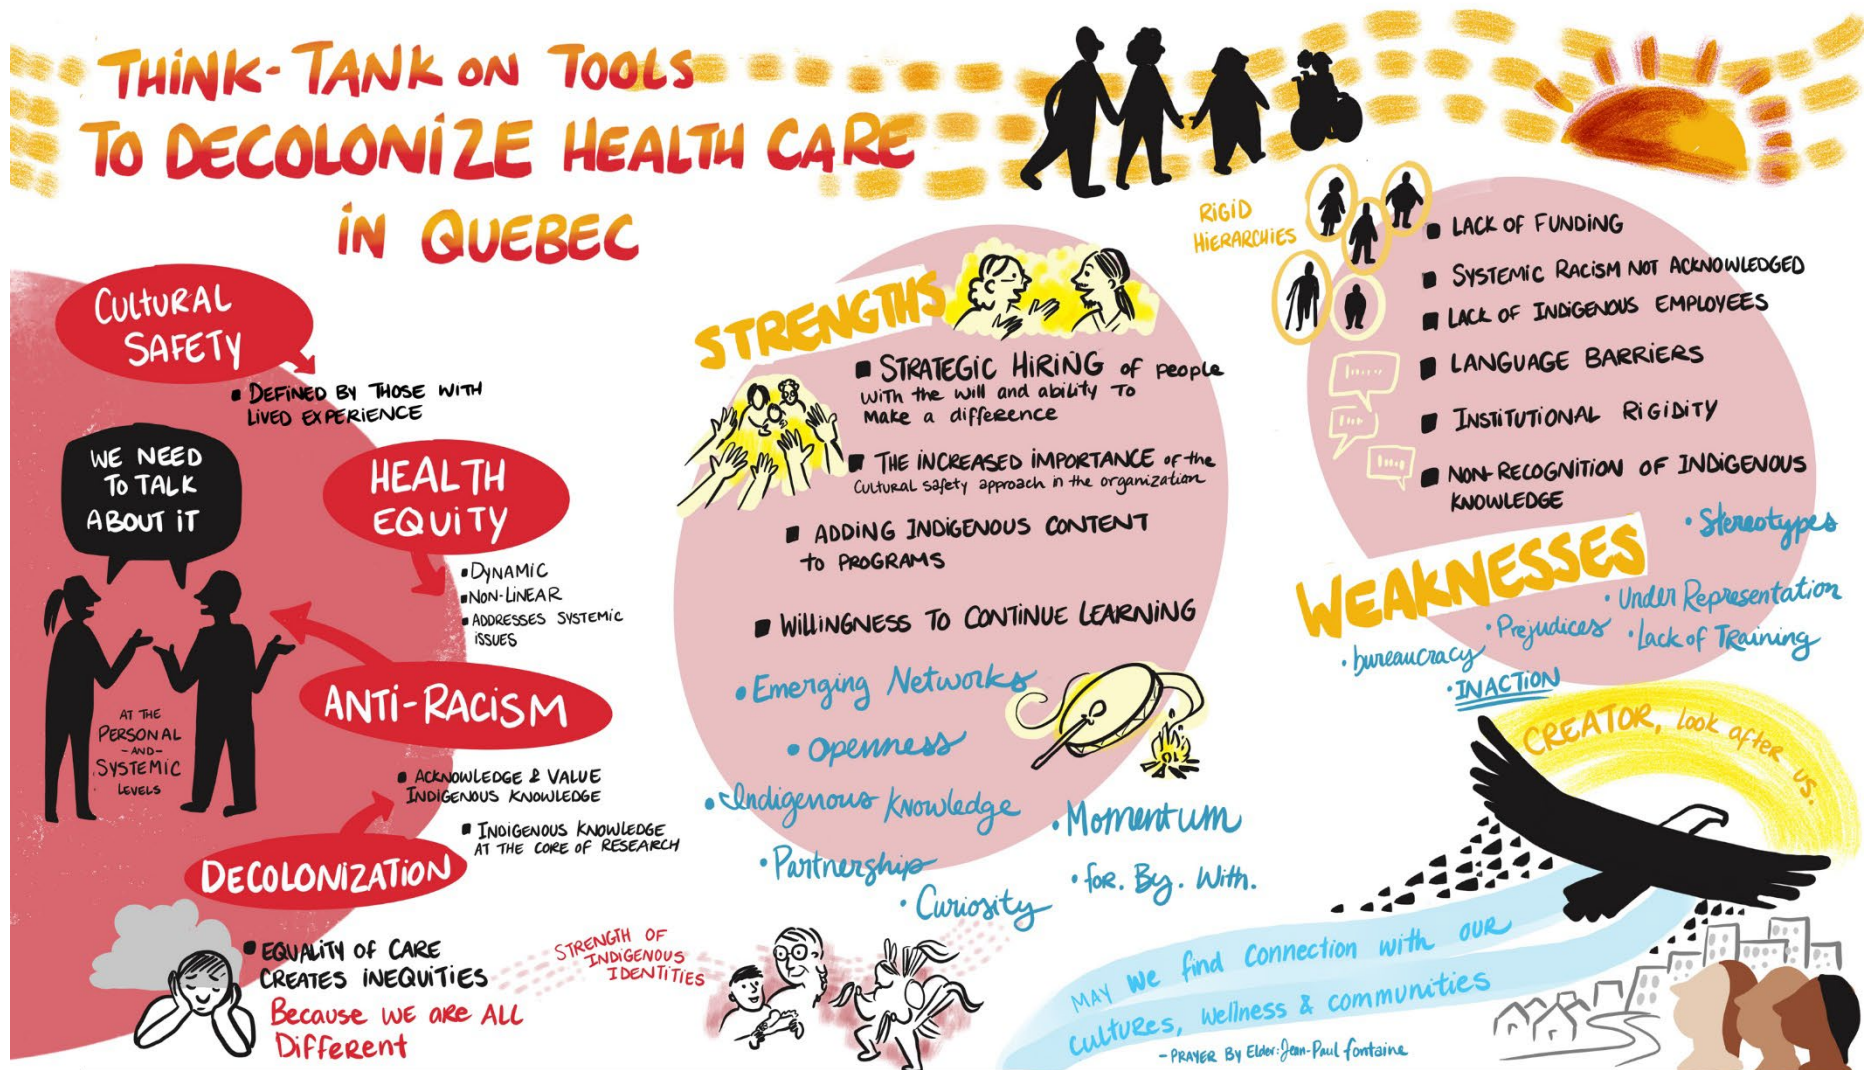 THINK-TANK ON TOOLS
TO DECOLONIZE HEALTH CARE
IN QUEBEC
CULTURAL
SAFETY
DEFINED BY THOSE WITH
LIVED EXPERIENCE
WE NEED
TO TALK
ABOUT IT
HEALTH
EQUITY
DYNAMIC
NON-LINEAR
ADDRESSES SYSTEMIC
ISSUES
ANTI-RACISM
AT THE
PERSONAL
-AND-
SYSTEMIC
LEVELS
ACKNOWLEDGE & VALUE
INDIGENOUS KNOWLEDGE
INDIGENOUS KNOWLEDGE
AT THE CORE OF RESEARCH
DECOLONIZATION
EQUALITY OF CARE
CREATES INEQUITIES
Because WE aRe ALL
Different
STRENGTH OF
INDIGENOUS
IDENTITIES
STRENGTHS
STRATEGIC HIRING of people
with the will and ability To
make a difference
THE INCREASED IMPORTANCE of the
Cultural safety approach in the organization
ADDING INDIGENOUS CONTENT
to PROGRAMS
WILLINGNESS TO CONTINUE LEARNING
• Emerging Networks
• Openness
• Indigenous Knowledge
• Momentum
• Partnership
• for. By. With.
• Curiosity
RIGID
HIERARCHIES
LACK OF FUNDING
SYSTEMIC RACISM NOT ACKNOWLEDGED
LACK OF INDIGENOUS EMPLOYEES
LANGUAGE BARRIERS
INSTITUTIONAL RIGIDITY
NON-RECOGNITION OF INDIGENOUS
KNOWLEDGE
• Stereotypes
WEAKNESSES
• Under Representation
• Prejudices
• Lack of Training
• bureaucracy
• INACTION
CREATOR, look after us.
MAY WE find Connection with OUR
CULTURES, Wellness & communities
- PRAYER By Elder: Jean-Paul fontaine